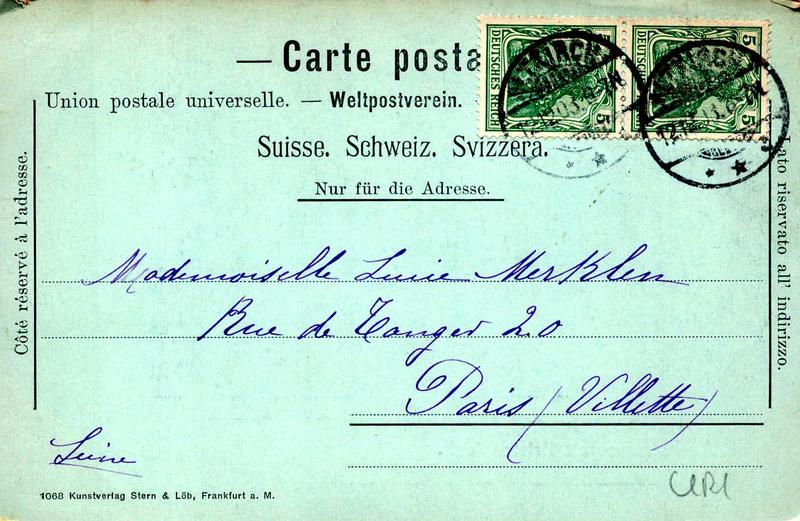 — Carte posta
Union postale universelle. — Weltpostverein.
Suisse. Schweiz. Svizzera.
Nur für die Adresse.
Côté réservé à l'adresse.
Lato riservato all' indirizzo.
DEUTSCHES REICH
5
5
DEUTSCHES REICH
5
5
Mademoiselle Lucie Merklen
Rue de Tanger 20
Paris (Villette)
Seine
1068 Kunstverlag Stern & Löb, Frankfurt a. M.
URI